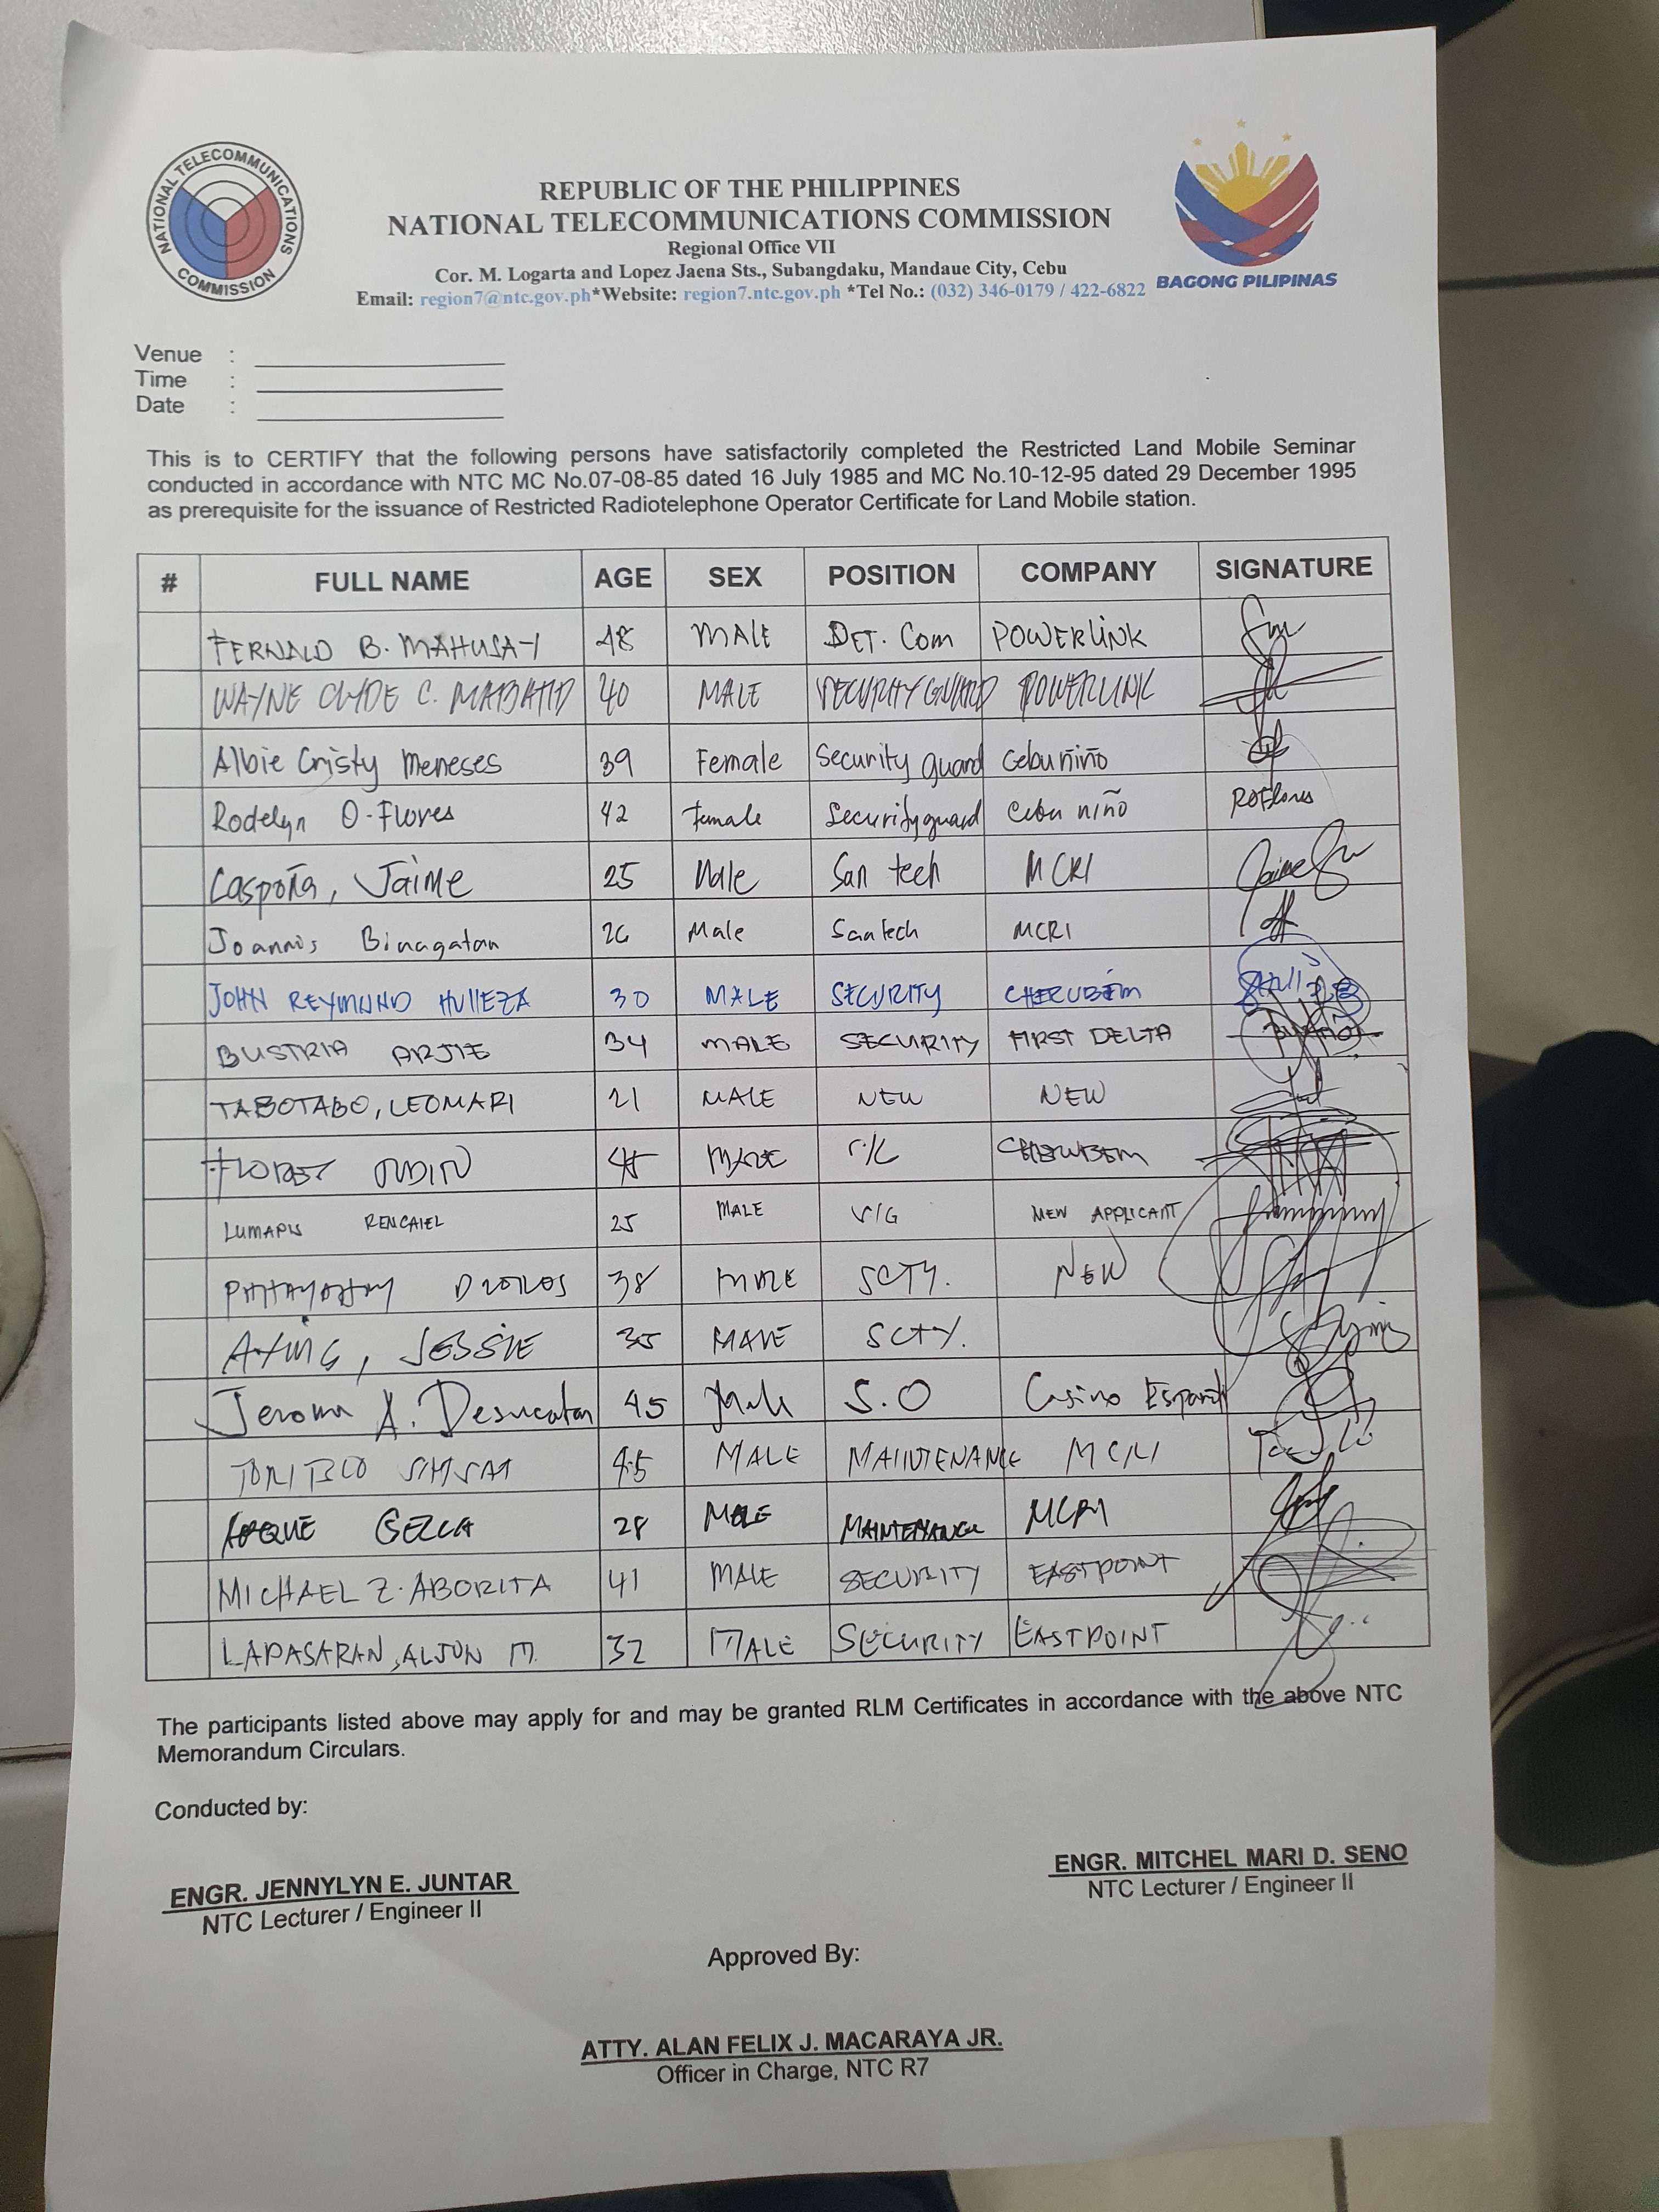 NATIONAL TELECOMMUNICATIONS
COMMISSION
REPUBLIC OF THE PHILIPPINES
NATIONAL TELECOMMUNICATIONS COMMISSION
Regional Office VII
Cor. M. Logarta and Lopez Jaena Sts., Subangdaku, Mandaue City, Cebu
Email: region7@ntc.gov.ph*Website: region7.ntc.gov.ph *Tel No.: (032) 346-0179 / 422-6822
BAGONG PILIPINAS
Venue :
Time :
Date :
This is to CERTIFY that the following persons have satisfactorily completed the Restricted Land Mobile Seminar
conducted in accordance with NTC MC No.07-08-85 dated 16 July 1985 and MC No.10-12-95 dated 29 December 1995
as prerequisite for the issuance of Restricted Radiotelephone Operator Certificate for Land Mobile station.
# FULL NAME AGE SEX POSITION COMPANY SIGNATURE
FERNALD B. MAHUSAY 48 MALE DET. Com POWERLINK
WAYNE CLYDE C. 40 MALE SECURITY GUARD POWERLINK
Albie Cristy Meneses 39 Female Security guard Cebu niño
Rodelyn O-Flores 42 Female Security guard Cebu niño ROFlores
Caspoña, Jaime 25 Male San tech MCRI Jaime
Joannis Binagatan 26 Male San tech MCRI
JOHN REYMUND HULLEZA 30 MALE SECURITY CHERUBIM
BUSTRIA ARJIE 34 MALE SECURITY FIRST DELTA
TABOTABO, LEOMARI 21 MALE NEW NEW
MALE CHERUBIM
LUMAPIS 25 MALE S/G NEW APPLICANT
38 MALE SCTY. NEW
AYING, JESSIE 35 MALE SCTY. Aying
Jerome A. Desucatan 45 Male S.O Casino Español
45 MALE MAINTENANCE MCRI
28 MALE MAINTENANCE MCRI
MICHAEL Z. ABORITA 41 MALE SECURITY EASTPOINT
LAPASARAN, ALJON M. 32 MALE SECURITY EASTPOINT
The participants listed above may apply for and may be granted RLM Certificates in accordance with the above NTC
Memorandum Circulars.
Conducted by:
ENGR. JENNYLYN E. JUNTAR
NTC Lecturer / Engineer II
ENGR. MITCHEL MARI D. SENO
NTC Lecturer / Engineer II
Approved By:
ATTY. ALAN FELIX J. MACARAYA JR.
Officer in Charge, NTC R7